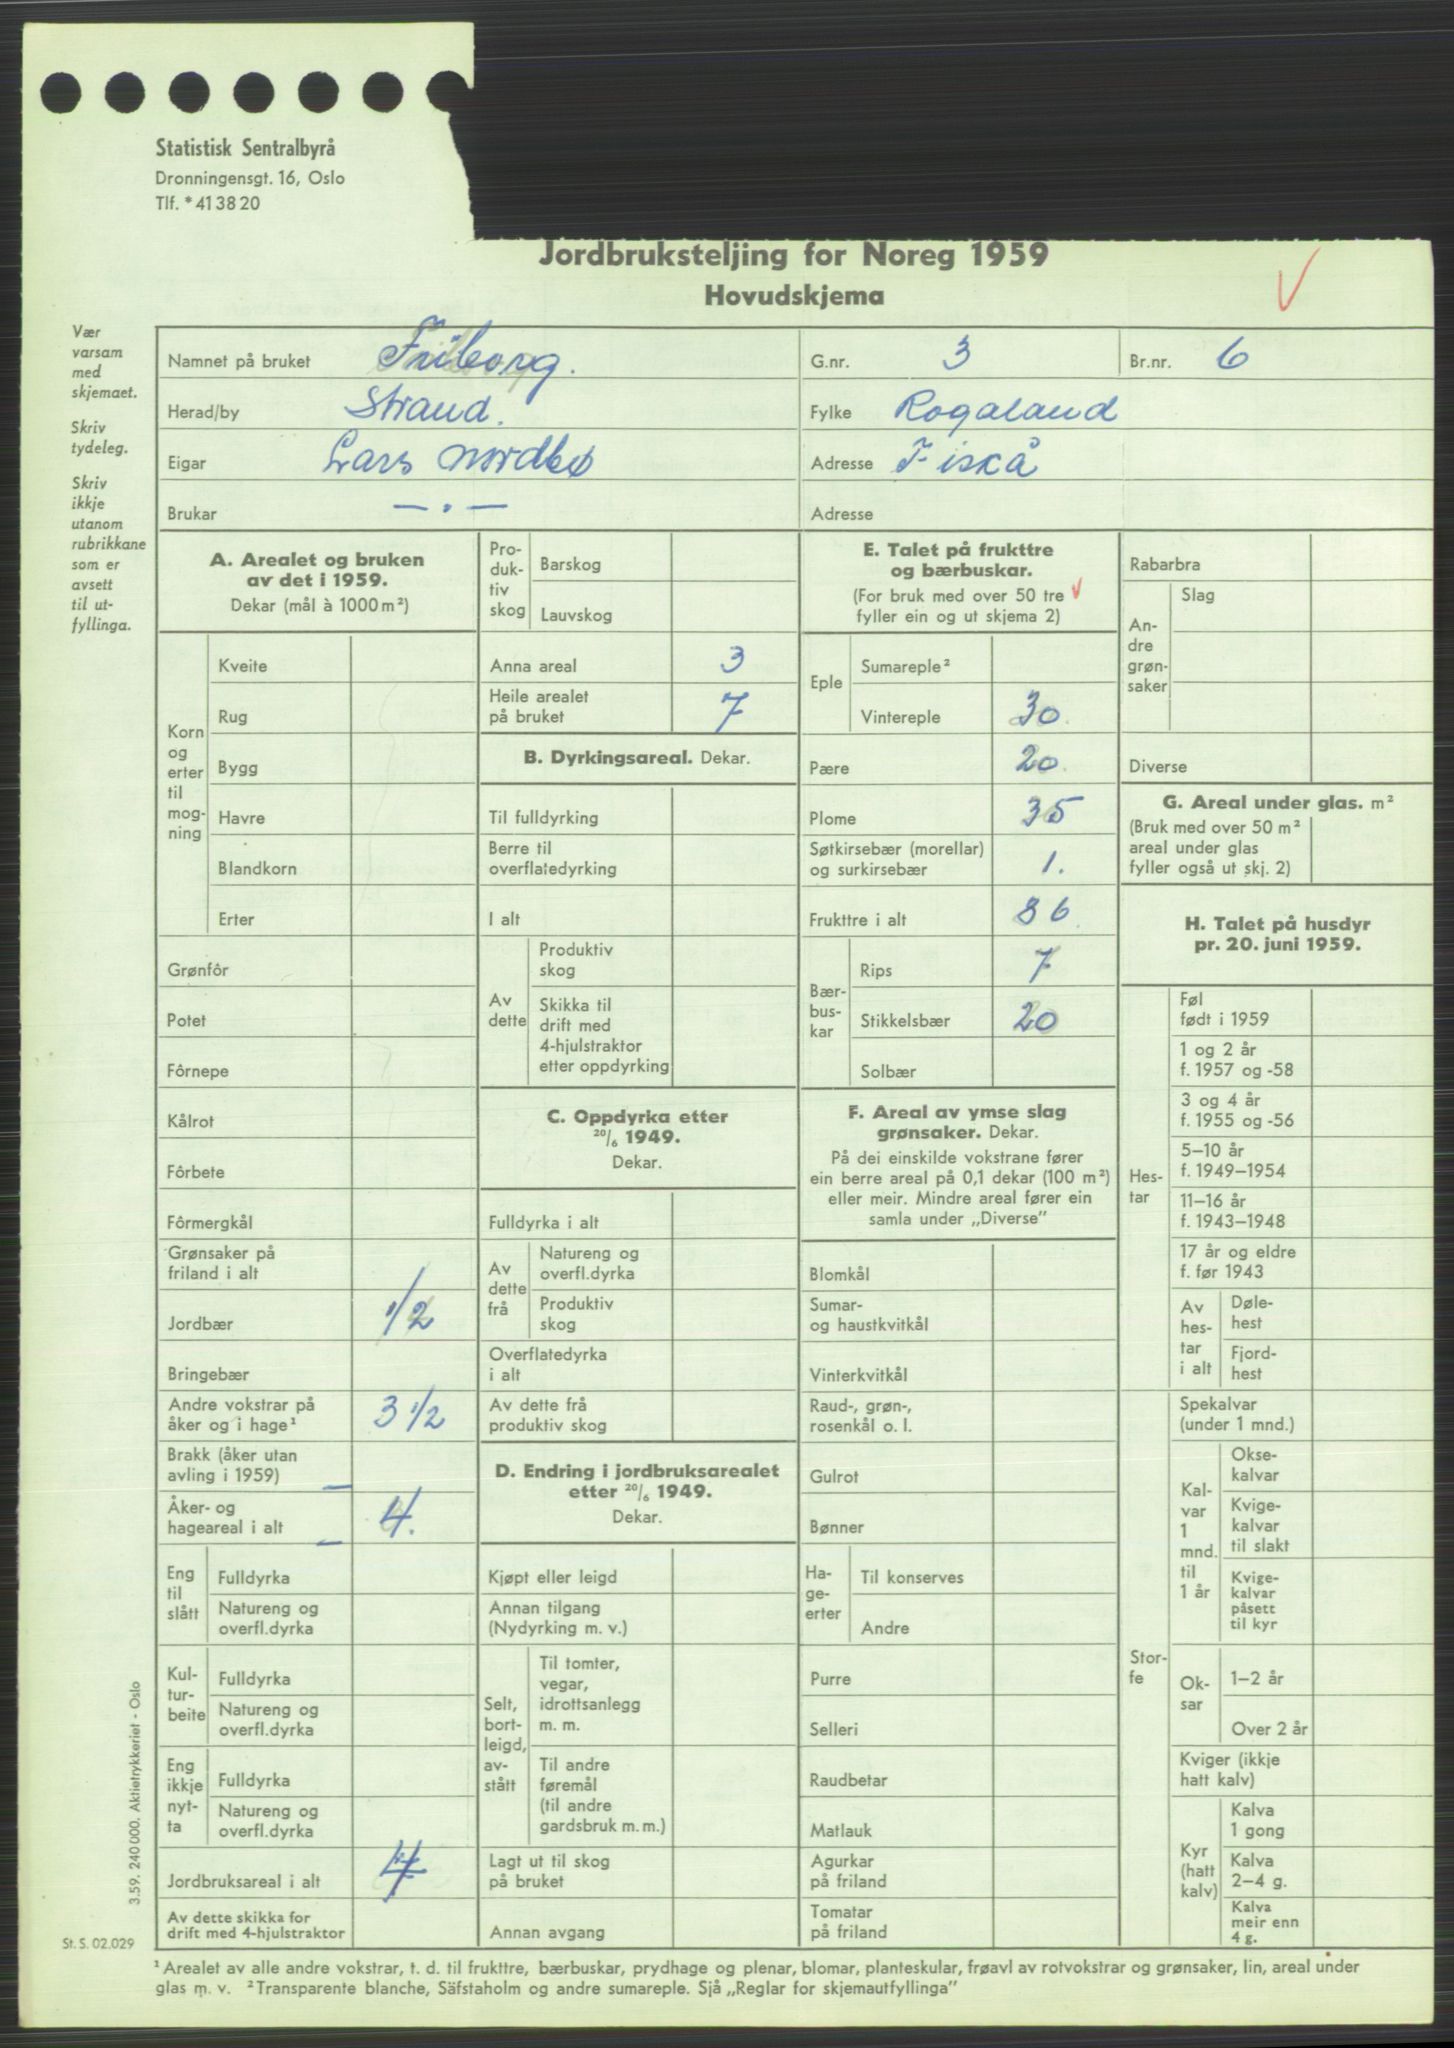 Statistisk Sentralbyrå
Dronningensgt. 16, Oslo
Tlf. * 41 38 20
Jordbruksteljing for Noreg 1959
Hovudskjema
Vær
varsam
med
skjemaet.
Skriv
tydeleg.
Skriv
ikkje
utanom
rubrikkane
som er
avsett
til ut-
fyllinga.
Namnet på bruket Friborg. G.nr. 3 Br.nr. 6
Herad/by Strand. Fylke Rogaland
Eigar Lars Nordbø Adresse Fiskå
Brukar — . — Adresse
A. Arealet og bruken
av det i 1959.
Dekar (mål à 1000 m²)
Korn
og
erter
til
mog-
ning
Kveite
Rug
Bygg
Havre
Blandkorn
Erter
Grønfôr
Potet
Fôrnepe
Kålrot
Fôrbete
Fôrmergkål
Grønsaker på
friland i alt
Jordbær 1/2
Bringebær
Andre vokstrar på
åker og i hage¹ 3 1/2
Brakk (åker utan
avling i 1959)
Åker- og
hageareal i alt 4.
Eng
til
slått
Fulldyrka
Natureng og
overfl.dyrka
Kul-
tur-
beite
Fulldyrka
Natureng og
overfl.dyrka
Eng
ikkje
nyt-
ta
Fulldyrka
Natureng og
overfl.dyrka
Jordbruksareal i alt 4
Av dette skikka for
drift med 4-hjulstraktor
Pro-
duk-
tiv
skog
Barskog
Lauvskog
Anna areal 3
Heile arealet
på bruket 7
B. Dyrkingsareal. Dekar.
Til fulldyrking
Berre til
overflatedyrking
I alt
Av
dette
Produktiv
skog
Skikka til
drift med
4-hjulstraktor
etter oppdyrking
C. Oppdyrka etter
20/6 1949.
Dekar.
Fulldyrka i alt
Av
dette
frå
Natureng og
overfl.dyrka
Produktiv
skog
Overflatedyrka
i alt
Av dette frå
produktiv skog
D. Endring i jordbruksarealet
etter 20/6 1949.
Dekar.
Kjøpt eller leigd
Annan tilgang
(Nydyrking m. v.)
Selt,
bort-
leigd,
av-
stått
Til tomter,
vegar,
idrottsanlegg
m. m.
Til andre
føremål
(til andre
gardsbruk m. m.)
Lagt ut til skog
på bruket
Annan avgang
E. Talet på frukttre
og bærbuskar.
(For bruk med over 50 tre
fyller ein og ut skjema 2)
Eple
Sumareple²
Vintereple 30.
Pære 20.
Plome 35
Søtkirsebær (morellar)
og surkirsebær 1.
Frukttre i alt 86.
Bær-
bus-
kar
Rips 7
Stikkelsbær 20
Solbær
F. Areal av ymse slag
grønsaker. Dekar.
På dei einskilde vokstrane fører
ein berre areal på 0,1 dekar (100 m²)
eller meir. Mindre areal fører ein
samla under „Diverse”
Blomkål
Sumar-
og haustkvitkål
Vinterkvitkål
Raud-, grøn-,
rosenkål o. l.
Gulrot
Bønner
Ha-
ge-
erter
Til konserves
Andre
Purre
Selleri
Raudbetar
Matlauk
Agurkar
på friland
Tomatar
på friland
Rabarbra
An-
dre
grøn-
saker
Slag
Diverse
G. Areal under glas. m²
(Bruk med over 50 m²
areal under glas
fyller også ut skj. 2)
H. Talet på husdyr
pr. 20. juni 1959.
Hes-
tar
Føl
født i 1959
1 og 2 år
f. 1957 og -58
3 og 4 år
f. 1955 og -56
5–10 år
f. 1949–1954
11–16 år
f. 1943–1948
17 år og eldre
f. før 1943
Av
hes-
tar
i alt
Døle-
hest
Fjord-
hest
Stor-
fe
Spekalvar
(under 1 mnd.)
Kal-
var
1
mnd.
til
1 år
Okse-
kalvar
Kvige-
kalvar
til slakt
Kvige-
kalvar
påsett
til kyr
Ok-
sar
1–2 år
Over 2 år
Kviger (ikkje
hatt kalv)
Kyr
(hatt
kalv)
Kalva
1 gong
Kalva
2–4 g.
Kalva
meir enn
4 g.
3.59. 240 000. Aktietrykkeriet - Oslo
St. S. 02.029
¹ Arealet av alle andre vokstrar, t. d. til frukttre, bærbuskar, prydhage og plenar, blomar, planteskular, frøavl av rotvokstrar og grønsaker, lin, areal under
glas m. v. ² Transparente blanche, Säfstaholm og andre sumareple. Sjå „Reglar for skjemautfyllinga”